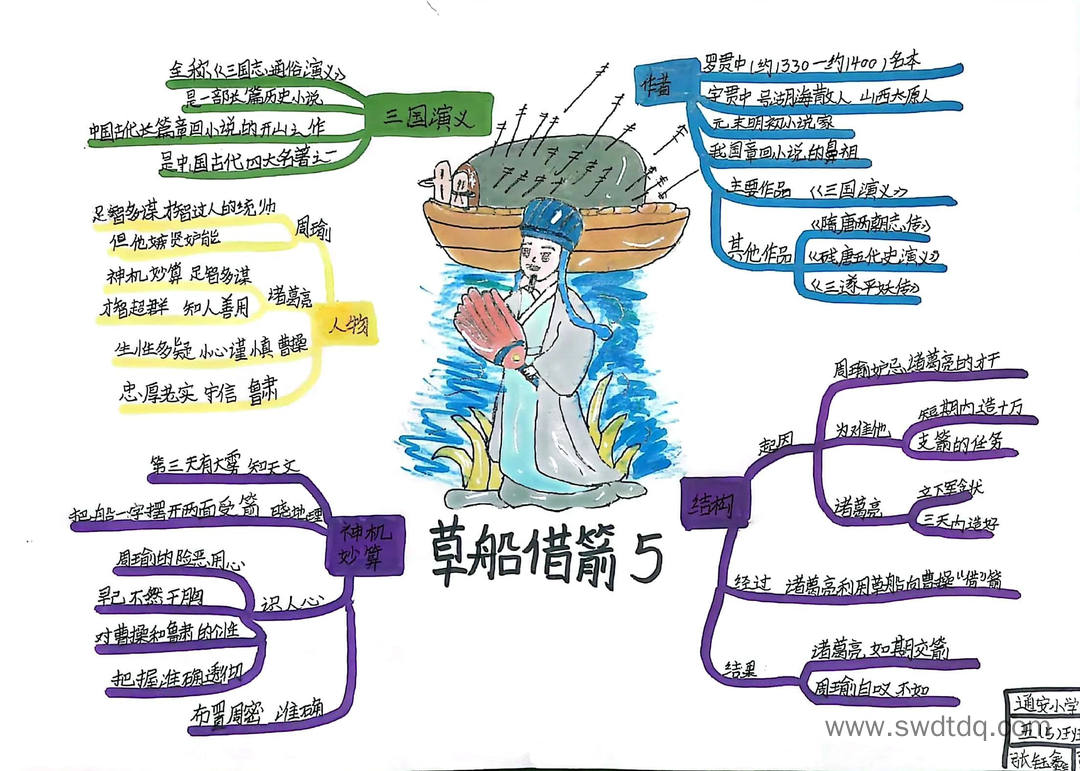 草船借箭5
三国演义
全称《三国志通俗演义》
是一部长篇历史小说
中国古代长篇章回小说的开山之作
是中国古代四大名著之一
作者
罗贯中(约1330一约1400)名本
字贯中 号湖海散人 山西太原人
元末明初小说家
我国章回小说的鼻祖
主要作品 《三国演义》
其他作品
《隋唐两朝志传》
《残唐五代史演义》
《三遂平妖传》
人物
周瑜
足智多谋 才智过人的统帅
但他嫉贤妒能
诸葛亮
神机妙算 足智多谋
才智超群 知人善用
生性多疑 小心谨慎 曹操
忠厚老实 守信 鲁肃
神机
妙算
第三天有大雾 知天文
把船一字摆开两面受箭 晓地理
识人心
周瑜的险恶用心
早已了然于胸
对曹操和鲁肃的个性
把握准确透彻
布置周密 准确
结构
起因
周瑜妒忌诸葛亮的才干
为难他
短期内造十万
支箭的任务
诸葛亮
立下军令状
三天内造好
经过 诸葛亮利用草船向曹操"借"箭
结果
诸葛亮如期交箭
周瑜自叹不如
www.swdtdq.com
通安小学
五(5)班
张钰鑫